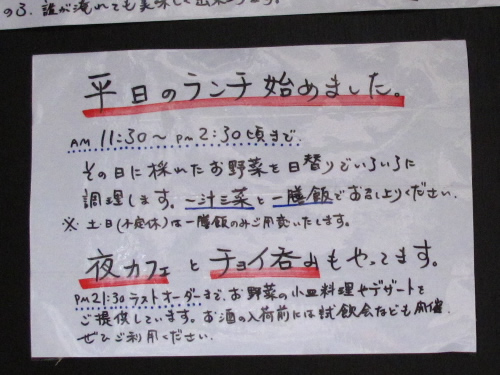 の3. 誰が淹れても美味しく出来ます。
平日のランチ始めました。
AM 11:30〜PM 2:30頃まで.
その日に採れたお野菜を日替りでいろいろに
調理します。一汁三菜と一膳飯でお召し上りください.
※ 土・日(不定休)は一膳飯のみご用意いたします。
夜カフェとチョイ呑みもやってます。
PM 21:30 ラストオーダーまで、お野菜の小皿料理やデザートを
ご提供しています。お酒の入荷前には試飲会なども開催.
ぜひご利用ください.